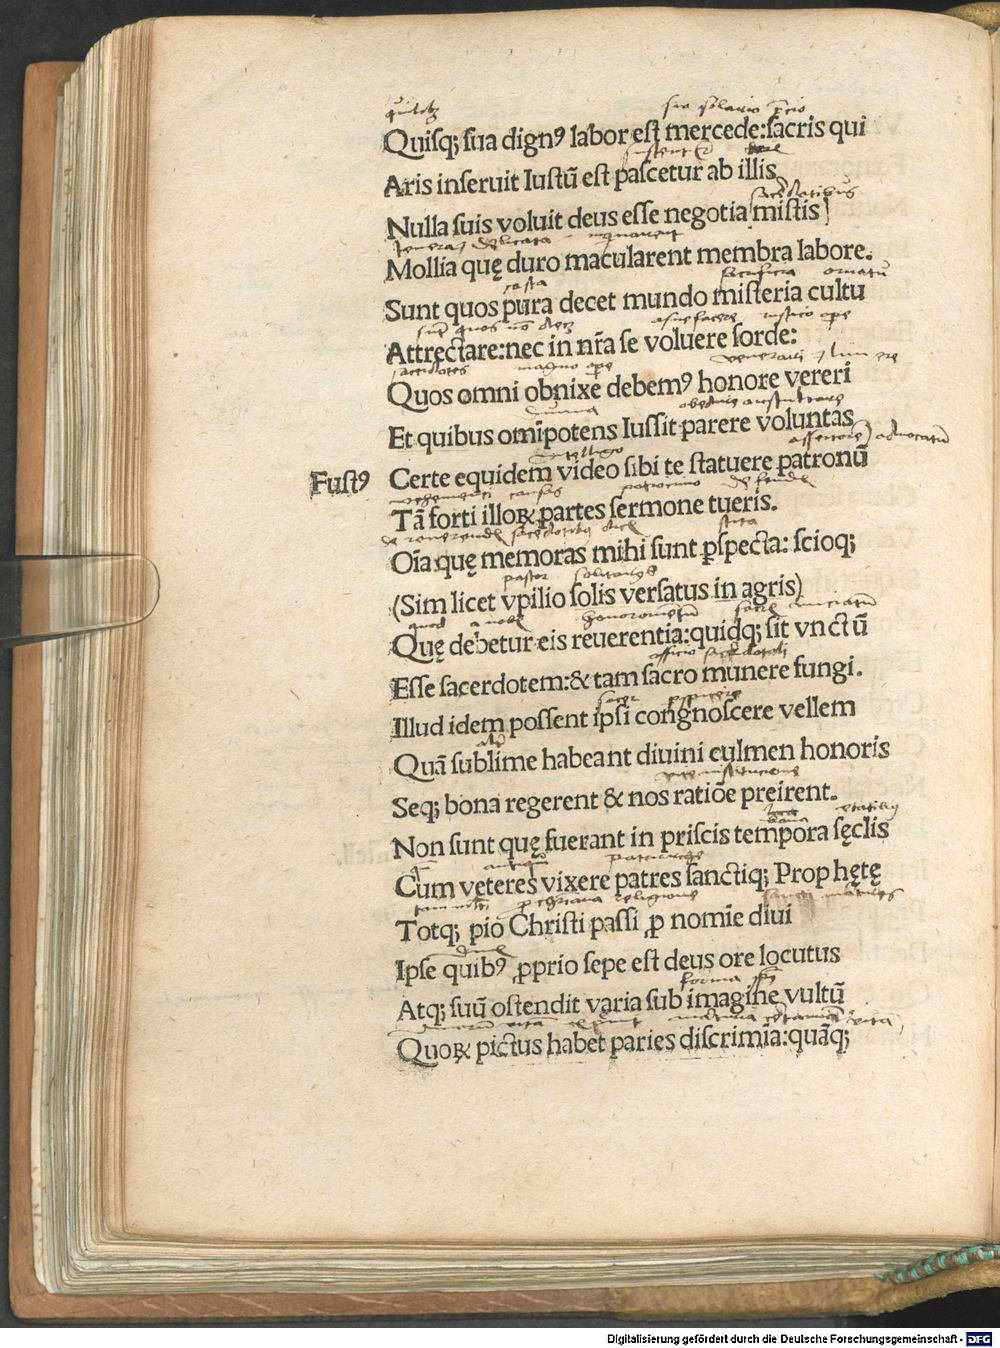 Quisq; sua dignꝰ labor est mercede: sacris qui
sustent
Aris inseruit Iustū est pascetur ab illis
sacerdotibus
Nulla suis voluit deus esse negotia mistis
delicata
Mollia quę duro macularent membra labore.
casta sacrificia ornatū
Sunt quos pura decet mundo misteria cultu
assuefacere rustico ope
Attrectare: nec in nr̄a se voluere sorde:
sacerdotes magno ope
Quos omni obnixe debemꝰ honore vereri
diuina
Et quibus omīpotens Iussit parere voluntas
intelligo assertorē aduocatū
Fustꝰ Certe equidem video sibi te statuere patronū
causas patrocinio
Tā forti illoꝝ partes sermone tueris.
Oīa quę memoras mihi sunt ꝑspecta: scioq;
pastor
(Sim licet vpilio solis versatus in agris)
quod a nobis
Quę debetur eis reuerentia: quidq; sit vnctū
officio sacerdotali
Esse sacerdotem: & tam sacro munere fungi.
Illud idem possent ipsi congnoscere vellem
Quā sublime habeant diuini culmen honoris
Seq; bona regerent & nos ratiōe preirent.
etatibꝰ
Non sunt quę fuerant in priscis tempora sęclis
Cum veteres vixere patres sanctiq; Prophętę
religione
Totq; pio Christi passi ꝓ nomīe diui
Ipse quibꝰ ꝓprio sepe est deus ore locutus
forma
Atq; suū ostendit varia sub imagine vultū
vita
Quoꝝ pictus habet paries discrimīa: quāq;
Digitalisierung gefördert durch die Deutsche Forschungsgemeinschaft - DFG